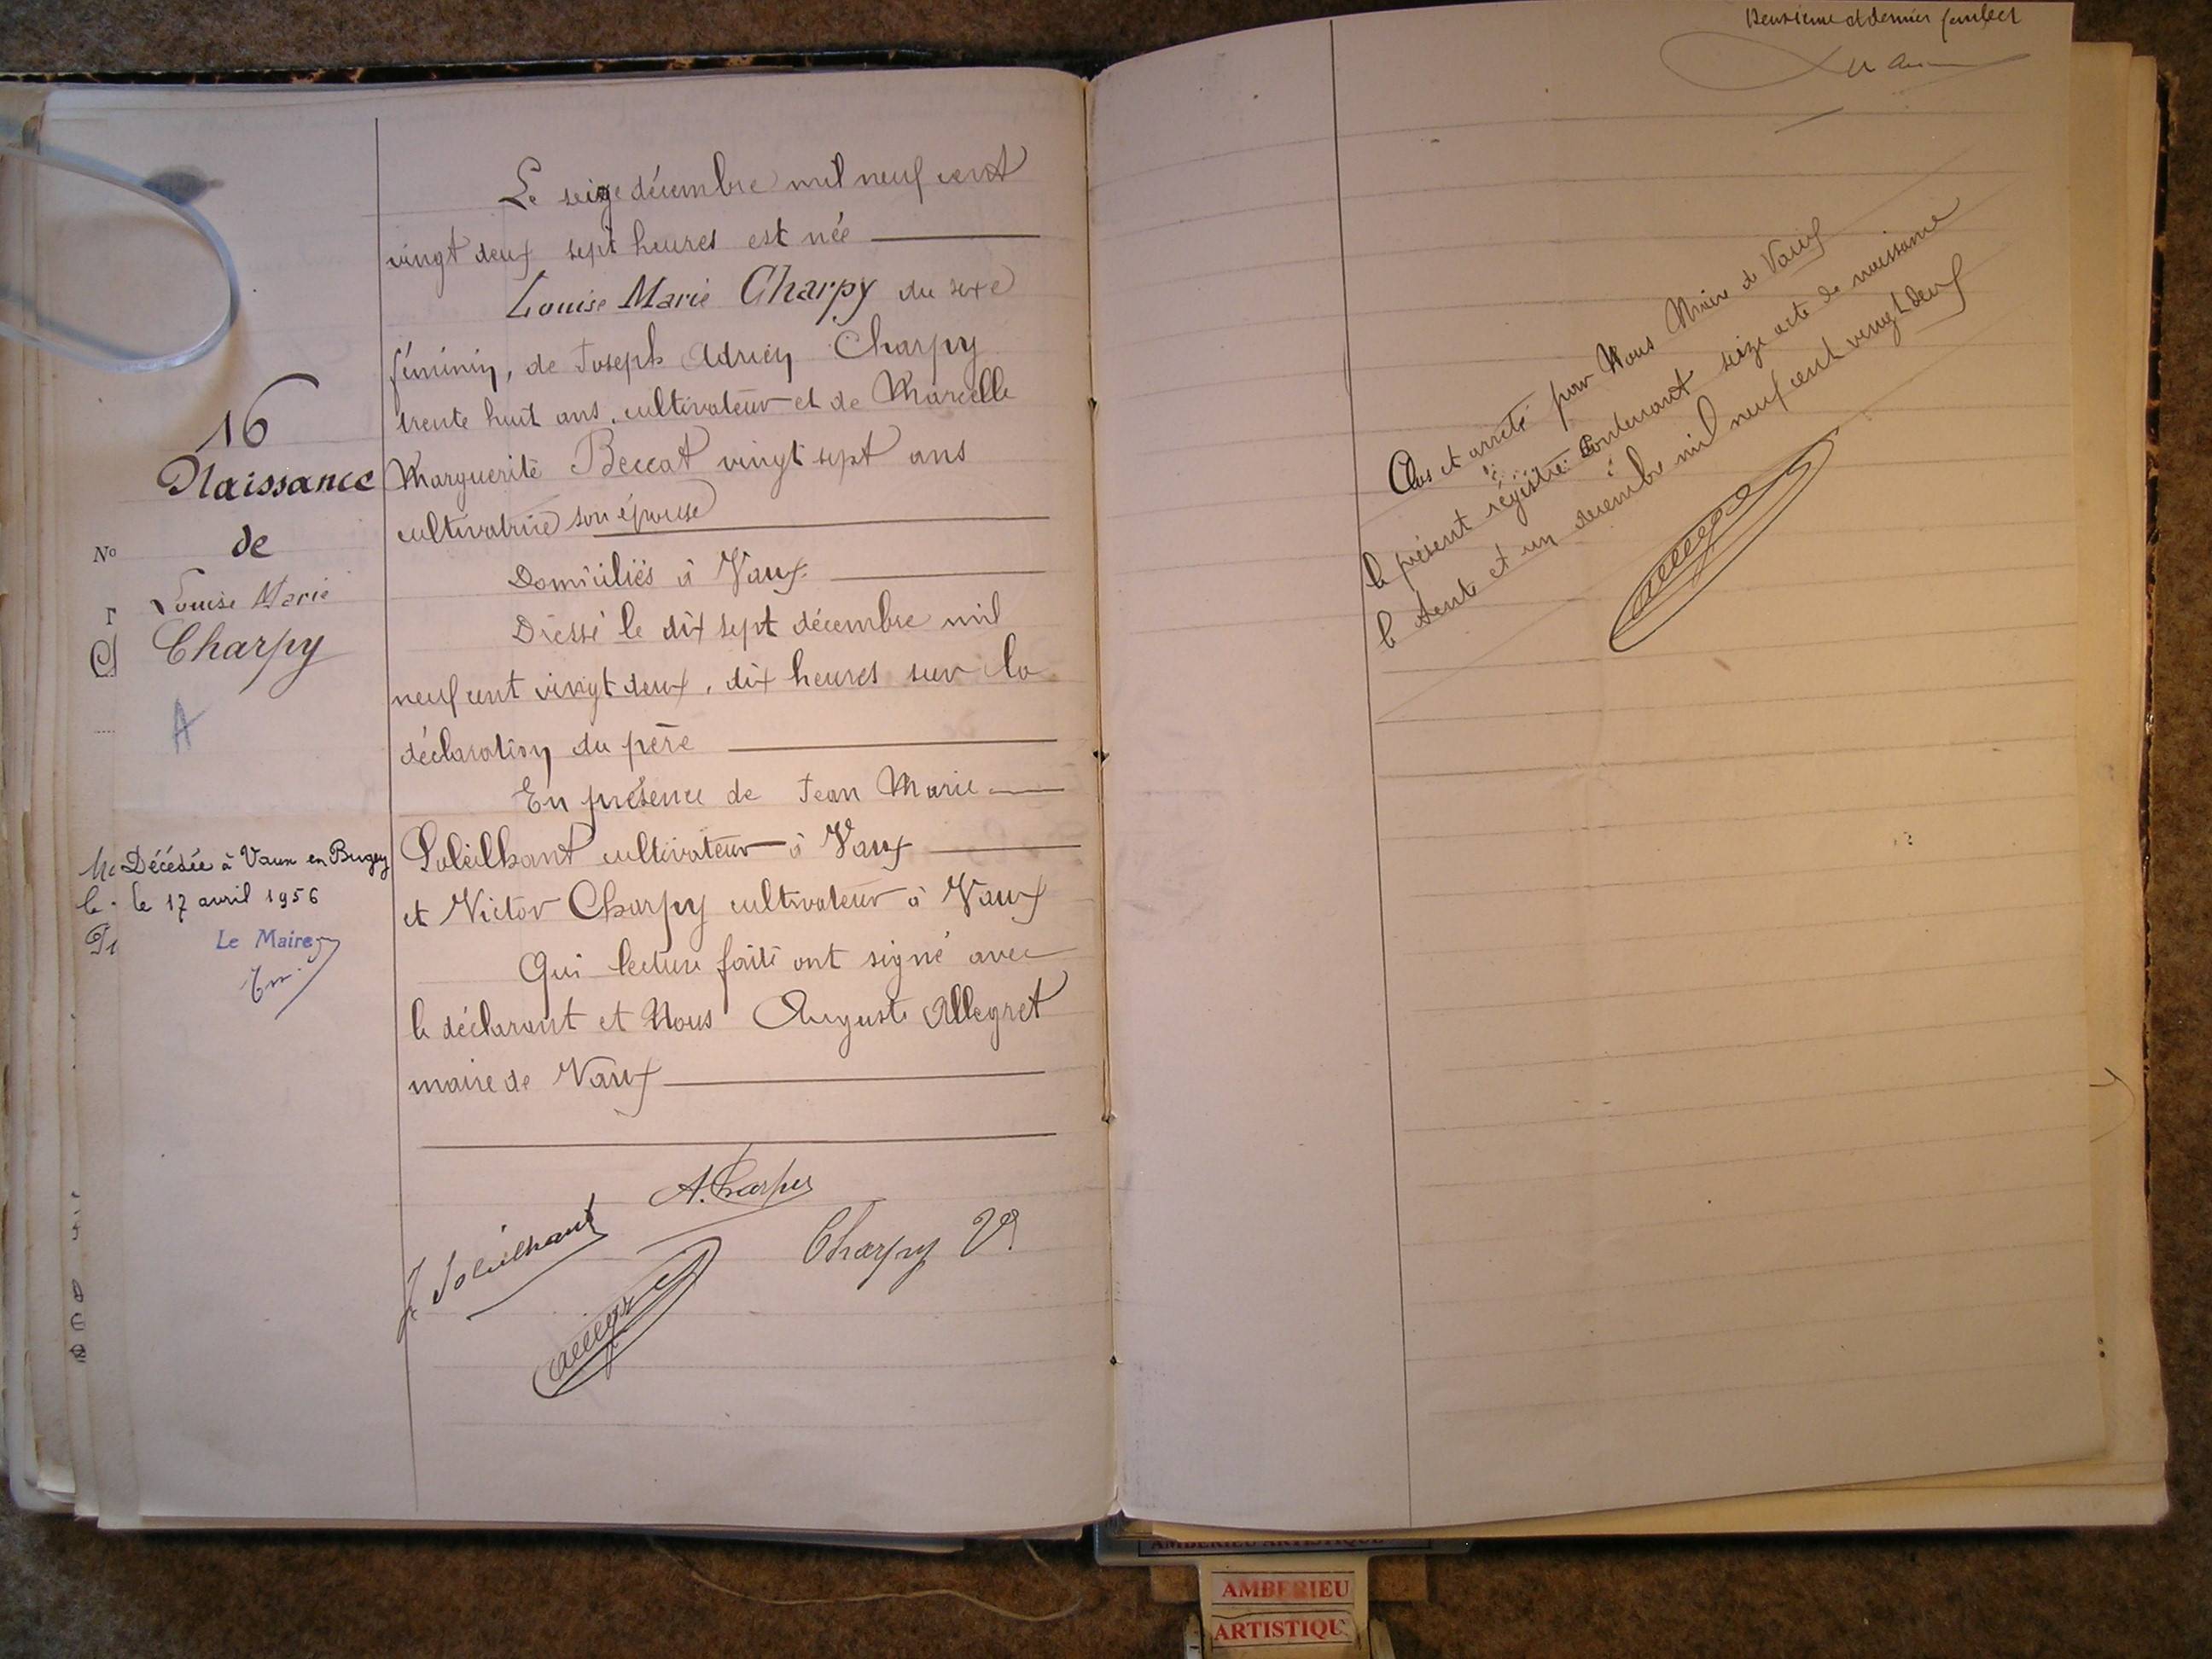 16
Naissance
de
Louise Marie
Charpy
A
Décédée à Vaux en Bugey
le 17 avril 1956
Le Maire
Le seize décembre mil neuf cent
vingt deux sept heures est née
Louise Marie Charpy du sexe
féminin, de Joseph Adrien Charpy
trente huit ans, cultivateur et de Marcelle
Marguerite Beccat vingt sept ans
cultivatrice son épouse
Domiciliés à Vaux
Dressé le dix sept décembre mil
neuf cent vingt deux, dix heures sur la
déclaration du père
En présence de Jean Marie
Soleilhant cultivateur à Vaux
et Victor Charpy cultivateur à Vaux
Qui lecture faite ont signé avec
le déclarant et Nous Auguste Allegret
maire de Vaux
A. Charpy
J. Soleilhant
Charpy V.
Allegret
Deuxième et dernier feuillet
Clos et arrêté par Nous Maire de Vaux
le présent régistre contenant seize acte de naissance
le trente et un décembre mil neuf cent vingt deux
Allegret
AMBERIEU ARTISTIQUE
AMBERIEU
ARTISTIQU